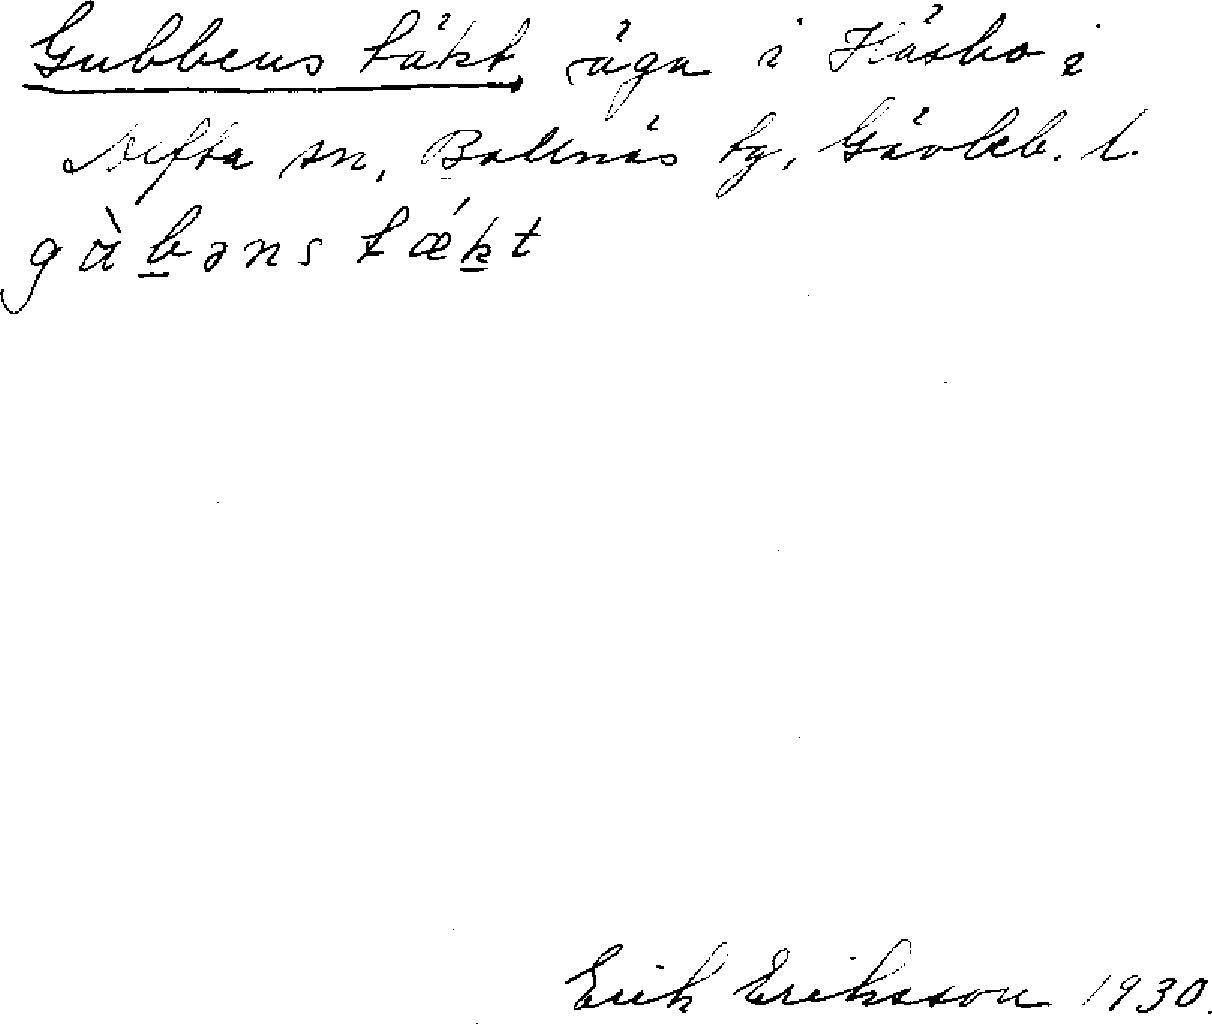 Gubbens täkt, äga i Häsbo i
Alfta sn, Bollnäs tg, Gävleb. l.
gàb̲əns tǽk̲t
Erik Eriksson 1930.